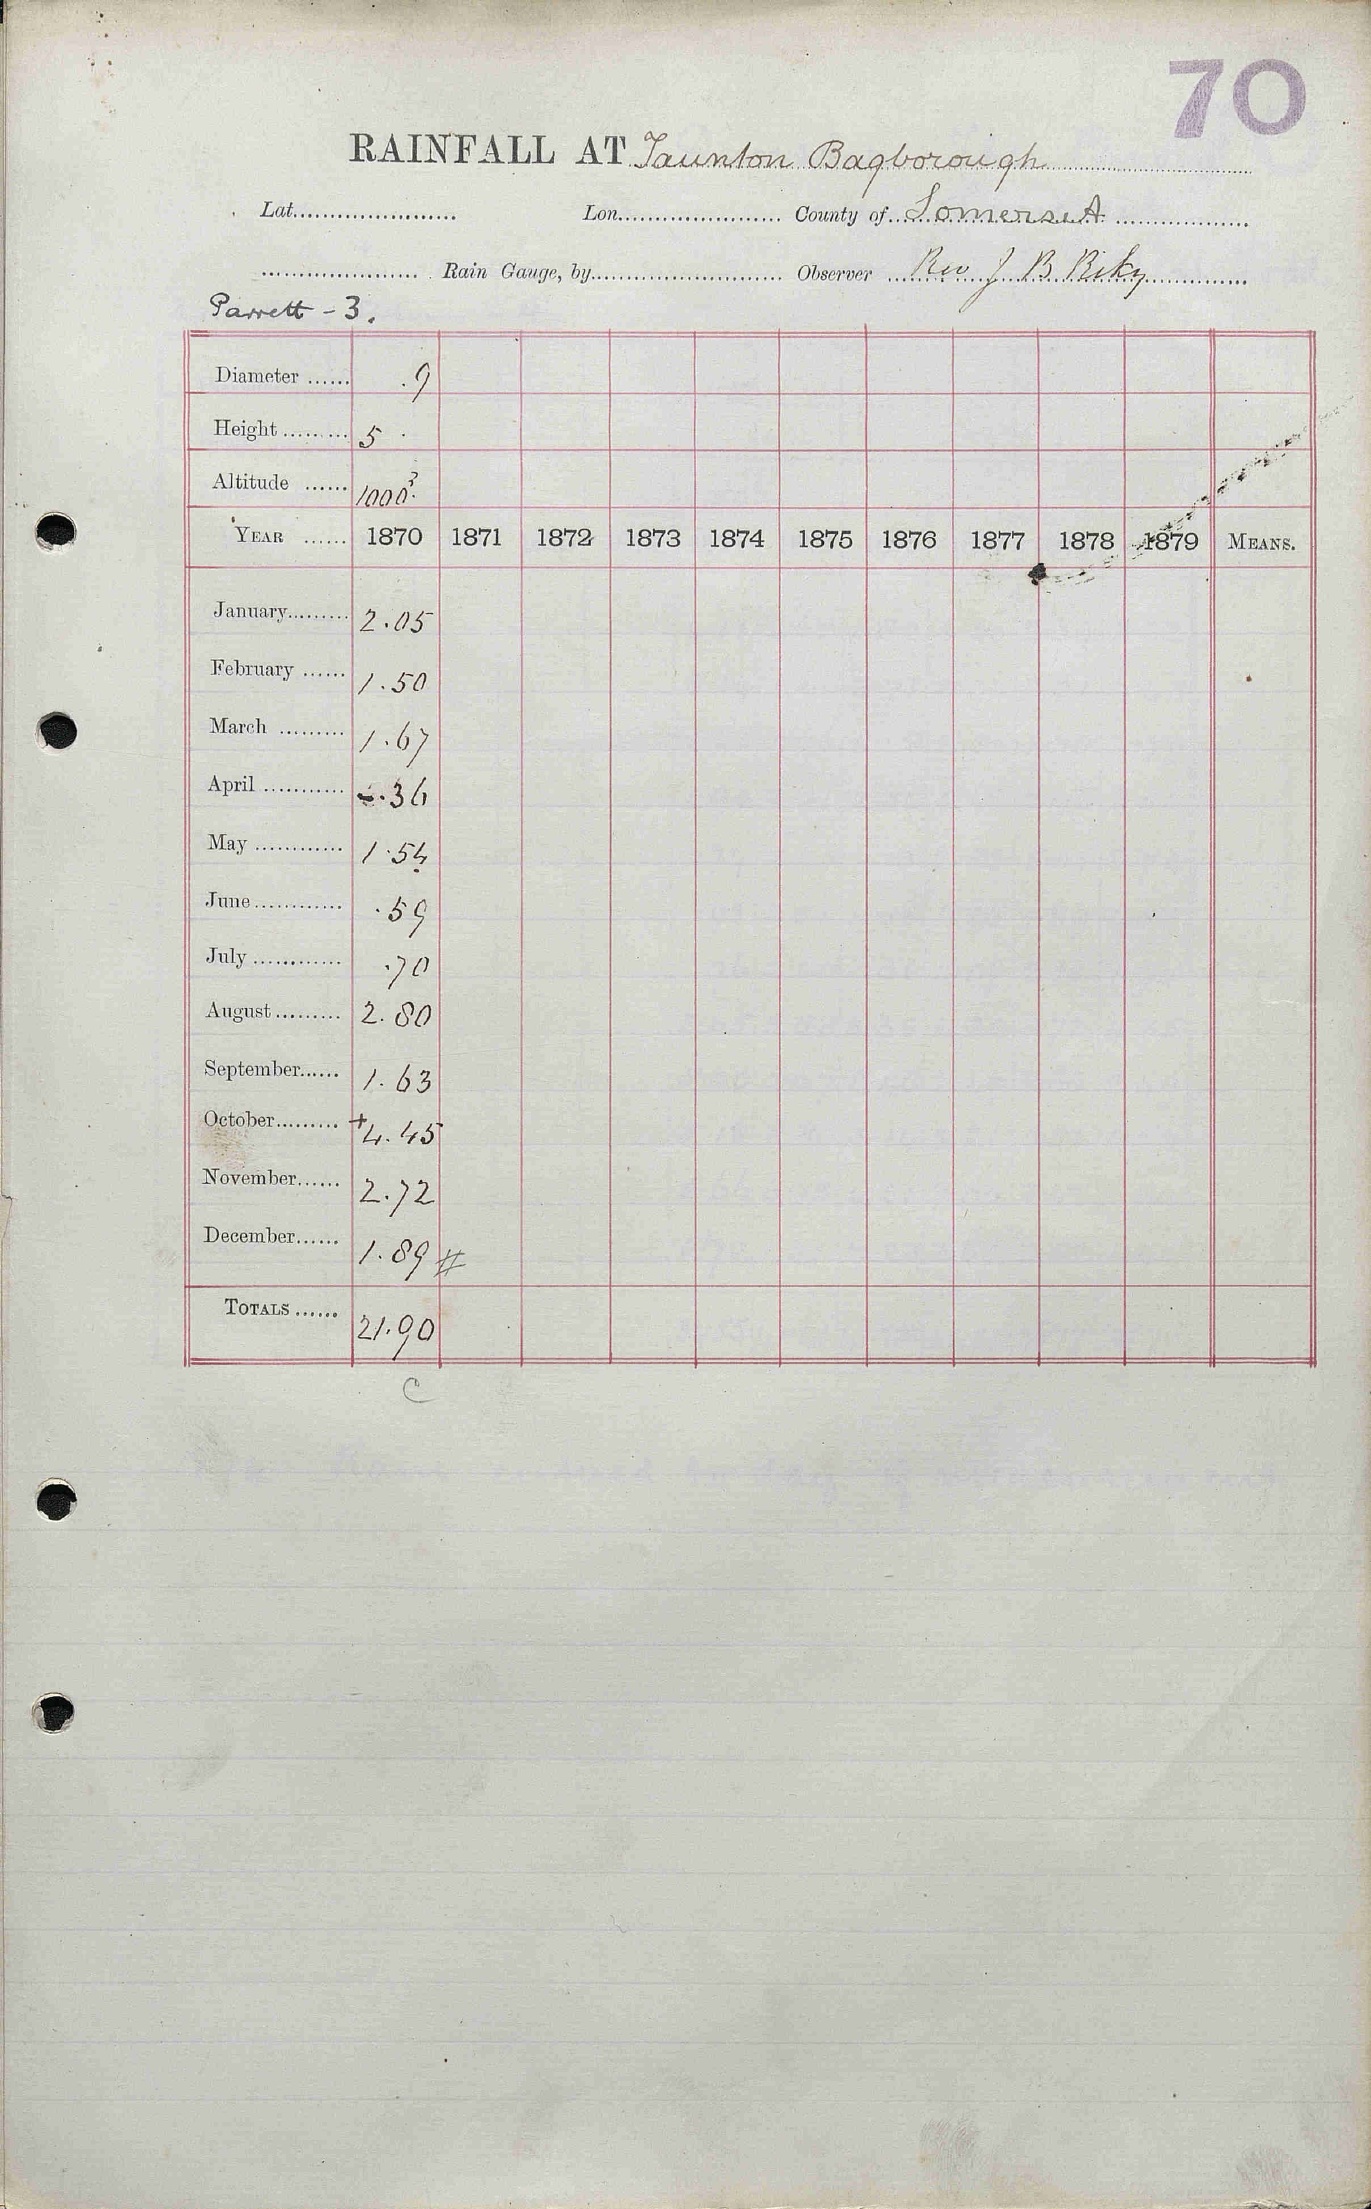 70
RAINFALL AT Taunton Bagborough
Lat. Lon. County of Somerset
Rain Gauge, by Observer Rev J B Riky
Parrett - 3.
Diameter ...... .9
Height ......... 5
Altitude ...... 1000?
YEAR ...... 1870 1871 1872 1873 1874 1875 1876 1877 1878 1879 MEANS.
January......... 2.05
February ...... 1.50
March ......... 1.67
April ........... .36
May ............ 1.54
June............ .59
July ............ .70
August ......... 2.80
September...... 1.63
October......... +4.45
November...... 2.72
December...... 1.89 #
TOTALS ...... 21.90
C